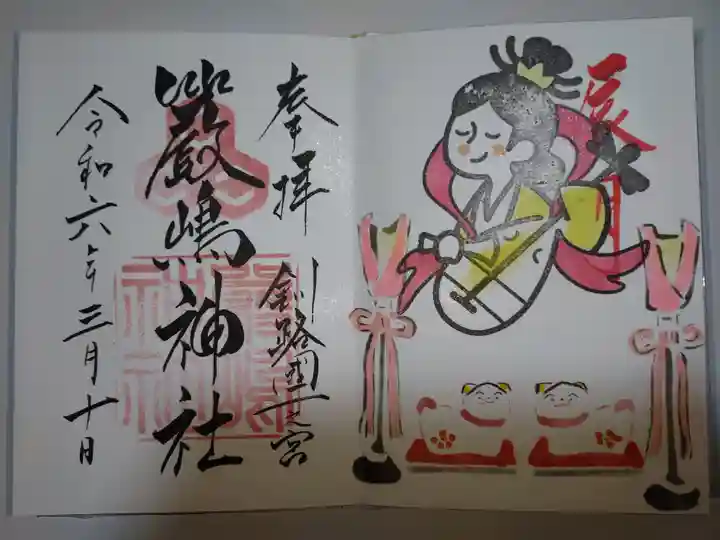 奉拝
釧路國一之宮
嚴嶋神社
令和六年三月十日